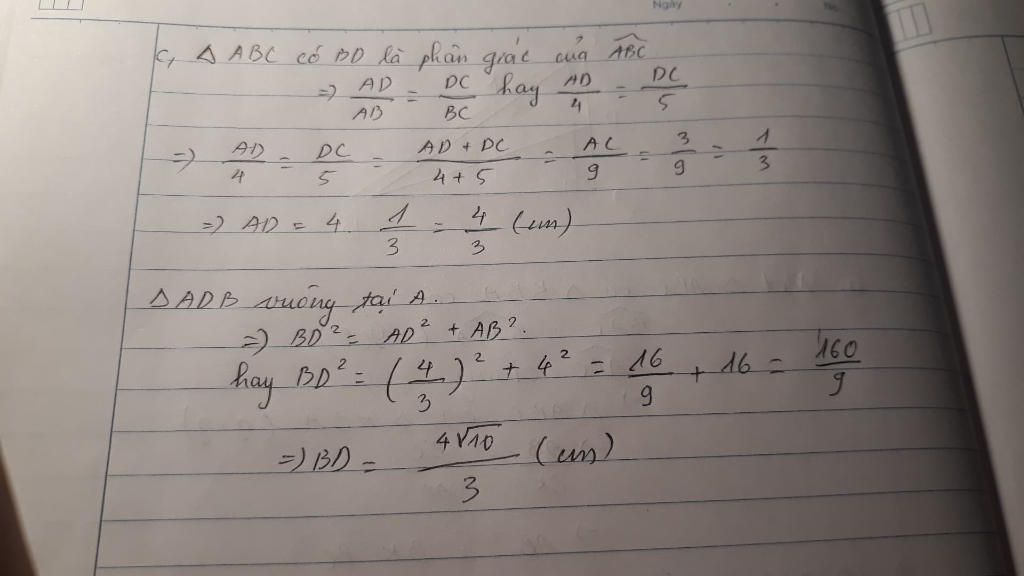 Ngày
No
c, Δ ABC có BD là phân giác của \widehat{ABC}
=> AD/AB = DC/BC hay AD/4 = DC/5
=> AD/4 = DC/5 = (AD + DC)/(4 + 5) = AC/9 = 3/9 = 1/3
=> AD = 4. 1/3 = 4/3 (cm)
Δ ADB vuông tại A.
=> BD² = AD² + AB².
hay BD² = (4/3)² + 4² = 16/9 + 16 = 160/9
=> BD = 4√10/3 (cm)